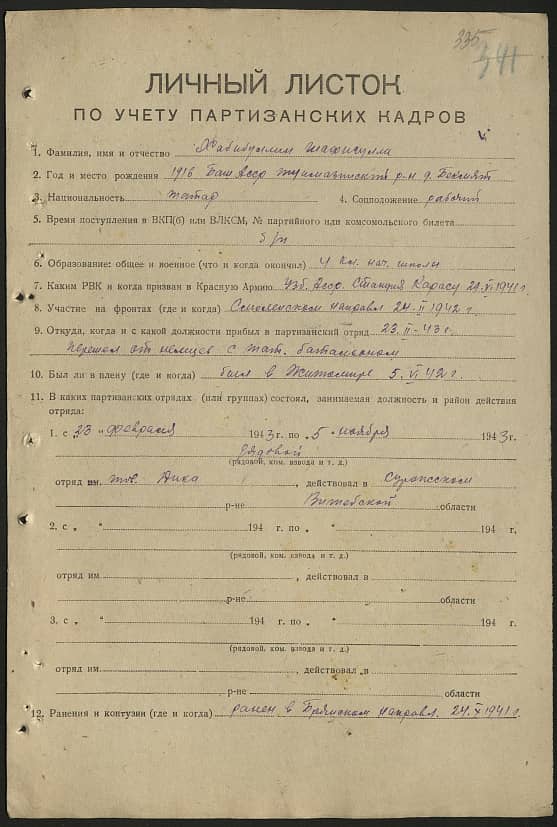 335
341
ЛИЧНЫЙ ЛИСТОК
ПО УЧЕТУ ПАРТИЗАНСКИХ КАДРОВ
1. Фамилия, имя и отчество Хабибуллин
2. Год и место рождения 1916 Баш. Асср р-н д.
3. Национальность татар 4. Соцположение рабочий
5. Время поступления в ВКП(б) или ВЛКСМ, № партийного или комсомольского билета
б/п
6. Образование: общее и военное (что и когда окончил) 4 кл. нач. школы
7. Каким РВК и когда призван в Красную Армию Узб. Асср. Станция Карасу 1941 г.
8. Участие на фронтах (где и когда) Смоленском направл 24. II 1942 г.
9. Откуда, когда и с какой должности прибыл в партизанский отряд 23. II-43 г.
перешел от немцев с тат. батальоном
10. Был ли в плену (где и когда) был в Житомире 5. VI 42 г.
11. В каких партизанских отрядах (или группах) состоял, занимаемая должность и район действия
отряда:
1. с 23 „ февраля 1943 г. по „ 5 „ ноября 1943 г.
рядовой
(рядовой, ком. взвода и т. д.)
отряд им. тов. , действовал в Суражском
р-не Витебской области
2. с „ “ 194 г. по „ “ 194 г,
(рядовой, ком. взвода и т. д.)
отряд им , действовал в
р-не области
3. с „ “ 194 г. по „ “ 194 г.
(рядовой, ком. взвода и т. д.)
отряд им , действовал в
р-не области
12. Ранения и контузии (где и когда) ранен в Брянском направл. 24. X 1941 г.